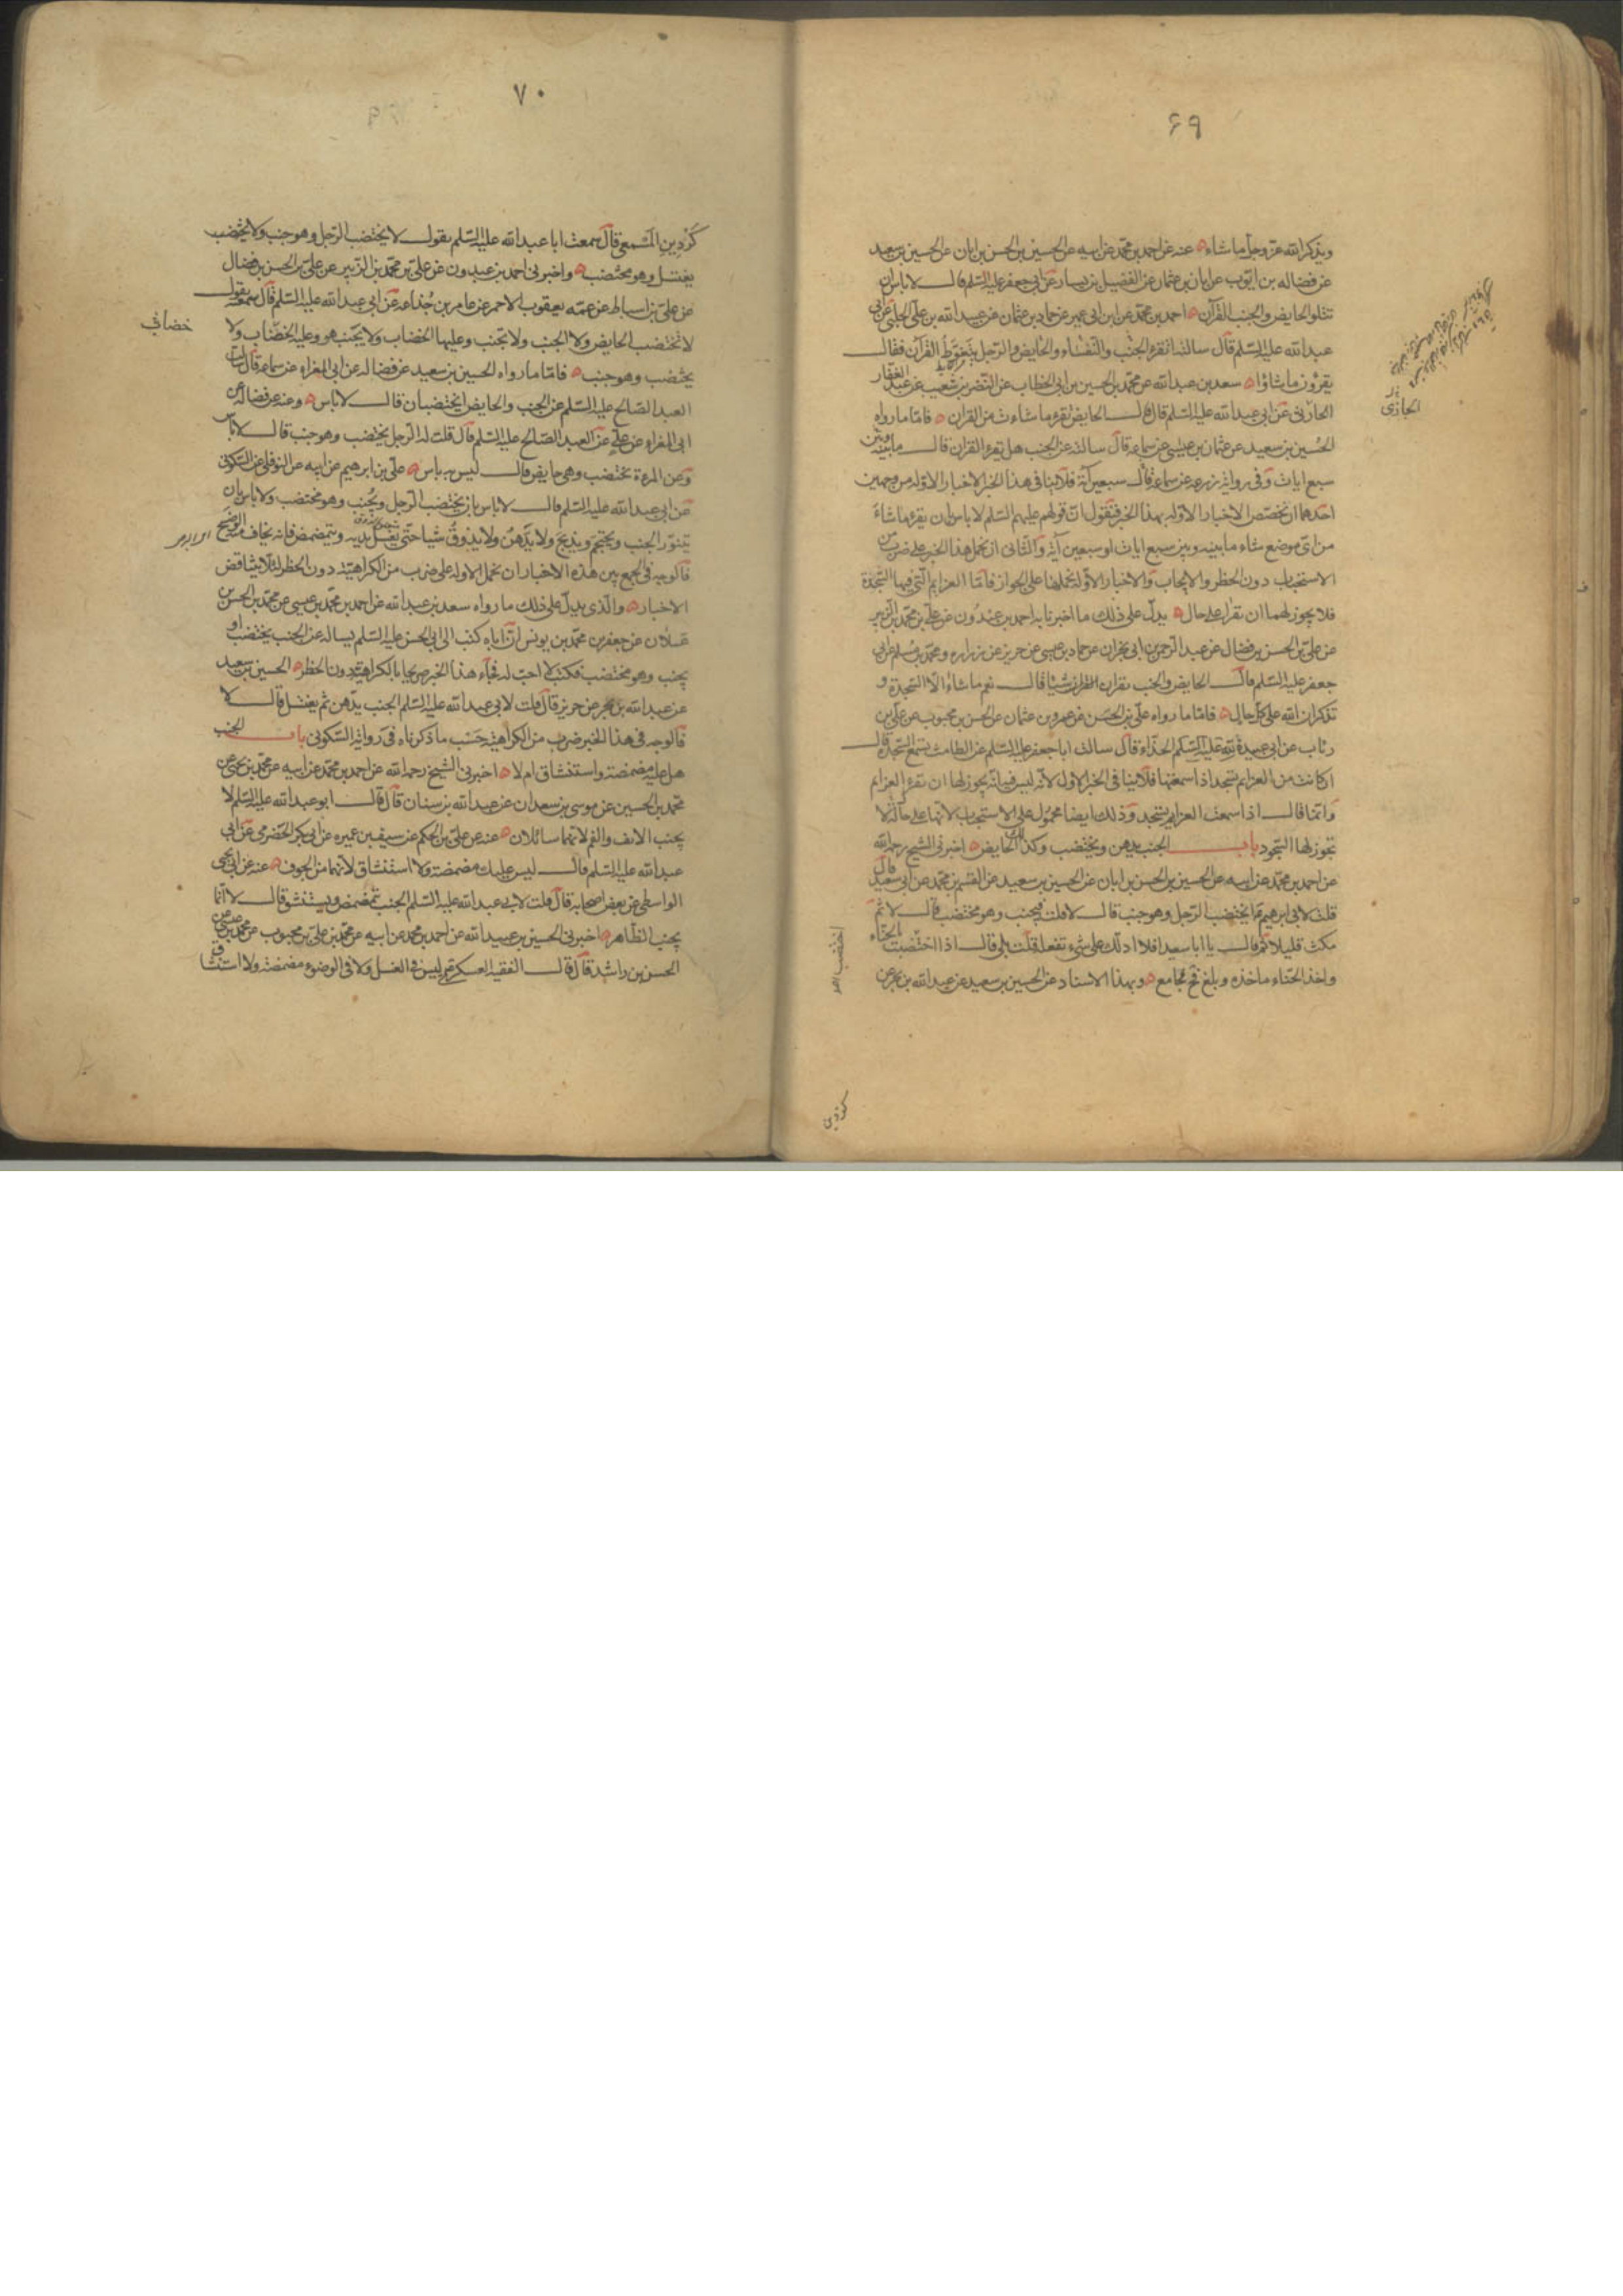 ۶۹
ويذكر الله عز وجل ما شاء ه عنه عن احمد بن محمد عن ابيه عن الحسين بن الحسن بن ابان عن الحسين بن سعيد
عن فضاله بن ايوب عن ابان بن عثمان عن الفضيل بن يسار عن ابى جعفر عليه السلم قال لا باس ان
تتلو الحايض والجنب القرآن ه احمد بن محمد عن ابن ابى عمير عن حماد بن عثمان عن عبيد الله بن على الحلبى عن ابى
عبد الله عليه السلم قال سالته اتقرء الجنب والنفساء والحايض والرجل يتغوط القرآن فقال
يقرؤن ما شاؤا ه سعد بن عبد الله عن محمد بن الحسين بن ابى الخطاب عن النضر بن شعيب عن عبد الغفار
الحازنى عن ابى عبد الله عليه السلم قال قال الحايض تقرء ما شاءت من القران ه فاما ما رواه
الحسين بن سعيد عن عثمان بن عيسى عن سماعه قال سالته عن الجنب هل يقرء القران قال ما بينه وبين
سبع ايات وفى رواية زرعه عن سماعه قال سبعين آية فلا ينافى هذا الخبر الاخبار الاوله من وجهين
احدهما ان نخصص الاخبار الاوله بهذا الخبر فنقول ان قولهم عليهم السلم لا باس ان يقرء ما شاء
من اى موضع شاء ما بينه وبين سبع ايات او سبعين آية والثانى ان نحمل هذا الخبر على ضرب من
الاستحباب دون الحظر والايجاب والاخبار الاوله نحملها على الجواز فاما العزايم التى فيها السجدة
فلا يجوز لهما ان يقرا على حال ه يدل على ذلك ما اخبرنا به احمد بن عبدون عن على بن محمد بن الزبير
عن على بن الحسن بن فضال عن عبد الرحمن بن ابى نجران عن حماد بن عيسى عن حريز عن زراره ومحمد بن مسلم عن ابى
جعفر عليه السلم قال الحايض والجنب يقران القران شيئا قال نعم ما شاءا الا السجدة و
تذكران الله على كل حال ه فاما ما رواه على بن الحسن عن عمرو بن عثمان عن الحسن بن محبوب عن على بن
رئاب عن ابى عبيدة الحذاء قال سالت ابا جعفر عليه السلم عن الطامث تسمع السجدة قال
ان كانت من العزايم تسجد اذا سمعتها فلا ينافى الخبر الاول لانه ليس فيه انه يجوز لها ان تقرء العزايم
وانما قال اذا سمعت العزايم تسجد وذلك ايضا محمول على الاستحباب لانها على حال لا
تجوز لها السجود باب الجنب يدهن ويختضب وكذلك الحايض ه اخبرنى الشيخ رحمه الله
عن احمد بن محمد عن ابيه عن الحسين بن الحسن بن ابان عن الحسين بن سعيد عن القسم بن محمد عن ابى سعيد قال
قلت لابى ابرهيم ع ايختضب الرجل وهو جنب قال لا قلت فيجنب وهو مختضب قال لا ثم
مكث قليلا ثم قال يا ابا سعيد افلا ادلك على شىء تفعله قلت بلى قال اذا اختضبت بالحناء
واخذ الحناء ماخذه وبلغ فح فجامع ه وبهذا الاسناد عن الحسين بن سعيد عن عبد الله بن بحر عن
الجازى
كردين
۷۰
كردين المسمعى قال سمعت ابا عبد الله عليه السلم يقول لا يختضب الرجل وهو جنب ولا يختضب
يغتسل وهو مختضب ه واخبرنى احمد بن عبدون عن على بن محمد بن الزبير عن على بن الحسن بن فضال
عن على بن اسباط عن عمه يعقوب الاحمر عن عامر بن جذاعه عن ابى عبد الله عليه السلم قال سمعته يقول
لا تختضب الحايض ولا الجنب ولا تجنب وعليها الخضاب ولا يجنب هو وعليه الخضاب ولا
يختضب وهو جنب ه فاما ما رواه الحسين بن سعيد عن فضاله عن ابى المغراء عن سماعه قال سالت
العبد الصالح عليه السلم عن الجنب والحايض ايختضبان قال لا باس ه وعنه عن فضاله عن
ابى المغراء عن على عن العبد الصالح عليه السلم قال قلت له الرجل يختضب وهو جنب قال لا باس
وعن المرءة تختضب وهى حايض قال ليس به باس ه على بن ابرهيم عن ابيه عن النوفلى عن السكونى
عن ابى عبد الله عليه السلم قال لا باس بان يختضب الرجل ويجنب وهو مختضب ولا باس بان
يتنور الجنب ويحتجم ويذبح ولا يدهن ولا يذوق شيا حتى يغسل يديه ويتمضمض فانه يخاف منه الوضح
فالوجه فى الجمع بين هذه الاخبار ان نحمل الاوله على ضرب من الكراهية دون الحظر لئلا يتناقض
الاخبار ه والذى يدل على ذلك ما رواه سعد بن عبد الله عن احمد بن محمد بن عيسى عن محمد بن الحسن بن
علان عن جعفر بن محمد بن يونس ان اباه كتب الى ابى الحسن عليه السلم يساله عن الجنب يختضب او
يجنب وهو مختضب فكتب لا احب له فجاء هذا الخبر صريحا بالكراهية دون الحظر ه الحسين بن سعيد
عن عبد الله بن بحر عن حريز قال قلت لابى عبد الله عليه السلم الجنب يدهن ثم يغتسل قال لا
فالوجه فى هذا الخبر ضرب من الكراهية حسب ما ذكرناه فى رواية السكونى باب الجنب
هل عليه مضمضة واستنشاق ام لا ه اخبرنى الشيخ رحمه الله عن احمد بن محمد عن ابيه عن محمد بن يحيى عن
محمد بن الحسين عن موسى بن سعدان عن عبد الله بن سنان قال قال ابو عبد الله عليه السلم لا
يجنب الانف والفم لانهما سائلان ه عنه عن على بن الحكم عن سيف بن عميره عن ابى بكر الحضرمى عن ابى
عبد الله عليه السلم قال ليس عليك مضمضة ولا استنشاق لانهما من الجوف ه عنه عن ابى يحيى
الواسطى عن بعض اصحابه قال قلت لابى عبد الله عليه السلم الجنب يتمضمض ويستنشق قال لا انما
يجنب الظاهر ه اخبرنى الحسين بن عبيد الله عن احمد بن محمد عن ابيه عن محمد بن على بن محبوب عن محمد بن عيسى عن
الحسن بن راشد قال قال الفقيه العسكرى ع ليس فى الغسل ولا فى الوضوء مضمضة ولا استنشاق
خضاب